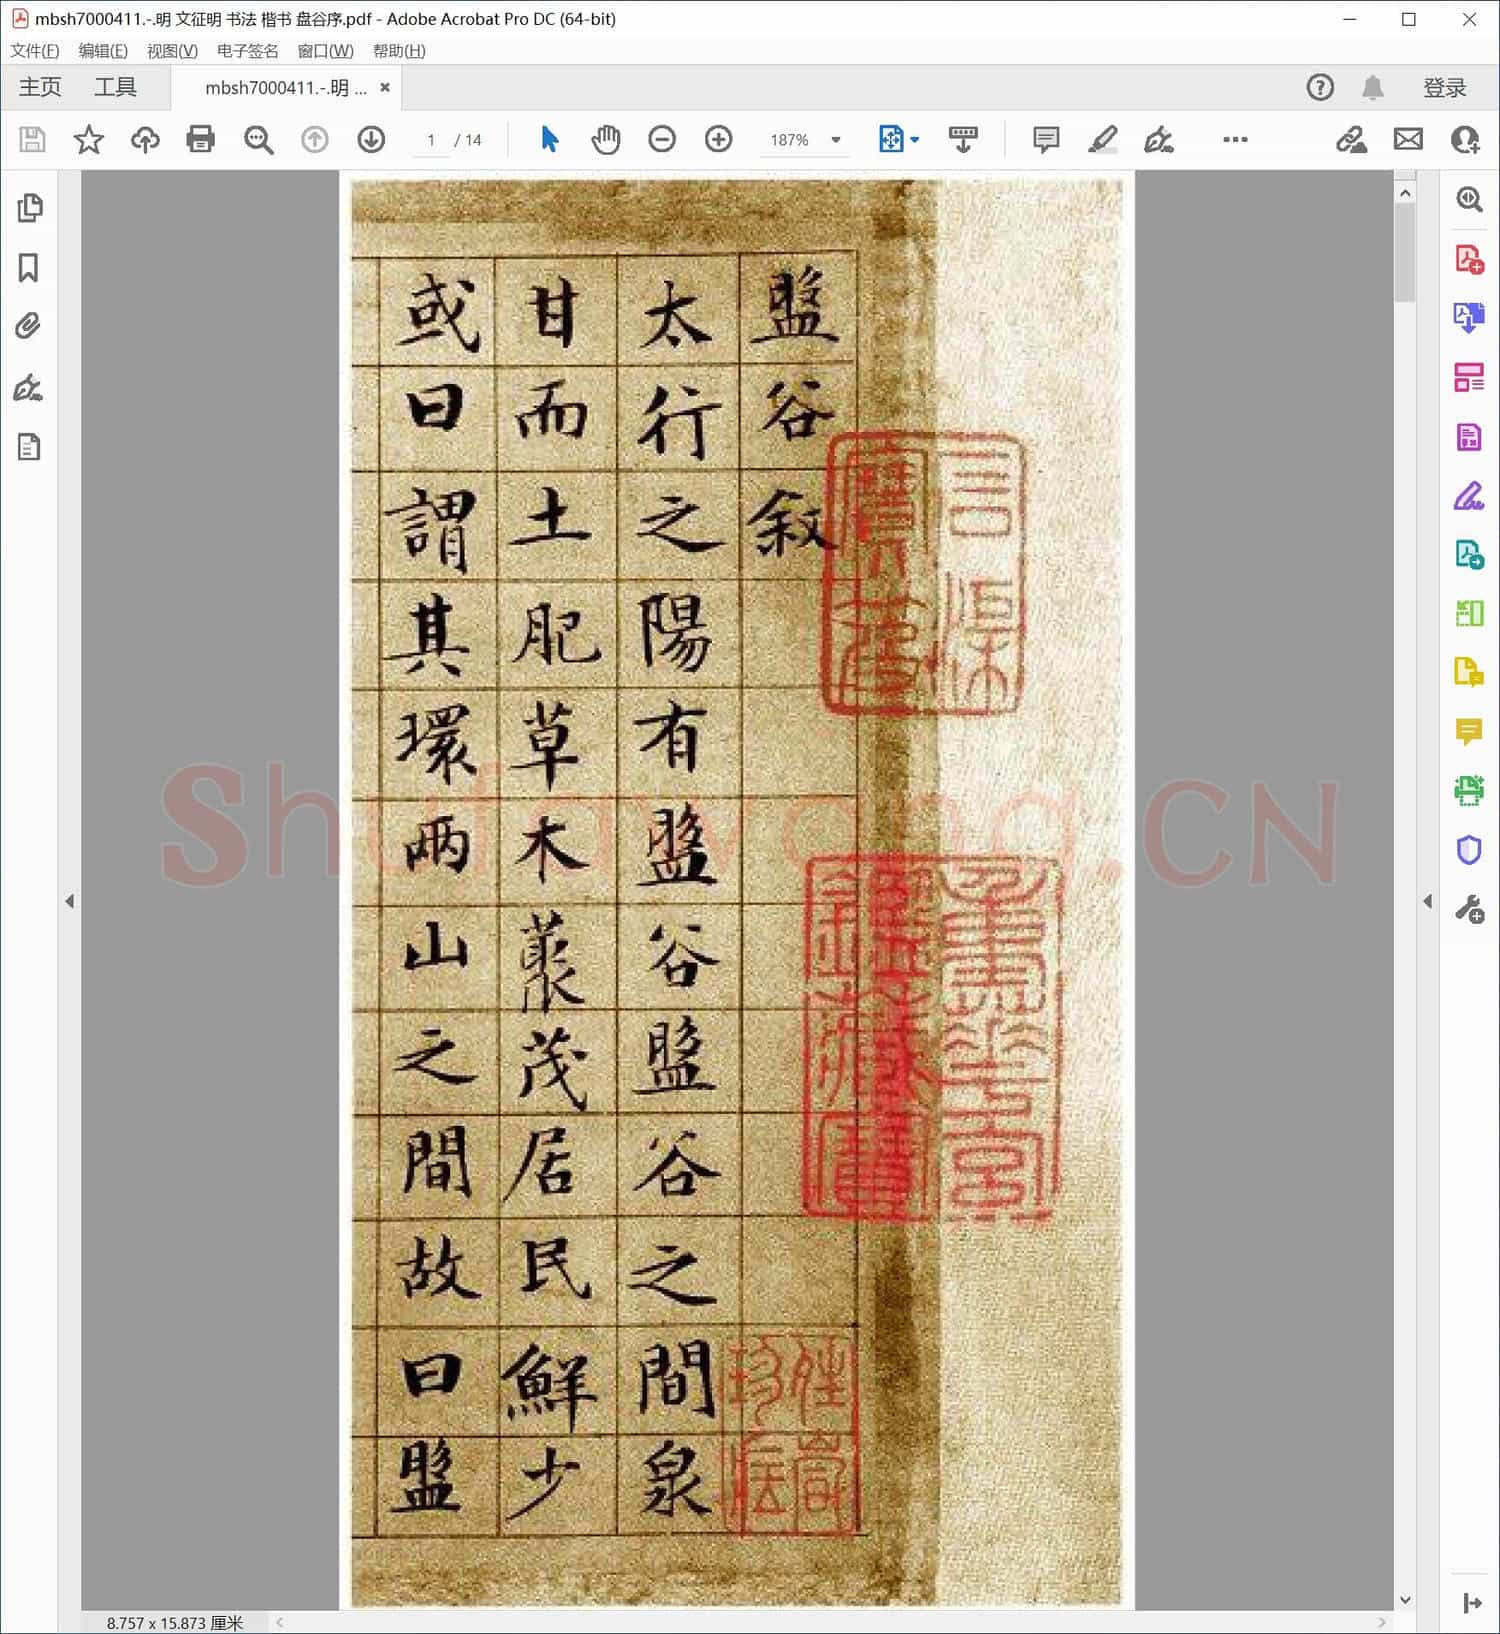 mbsh7000411.-.明 文征明 书法 楷书 盘谷序.pdf - Adobe Acrobat Pro DC (64-bit)
文件(F) 编辑(E) 视图(V) 电子签名 窗口(W) 帮助(H)
主页 工具 mbsh7000411.-.明 ... 登录
1 / 14 187%
盤谷敘
太行之陽有盤谷盤谷之間泉
甘而土肥草木叢茂居民鮮少
或曰謂其環兩山之間故曰盤
Shufawang.CN
8.757 x 15.873 厘米